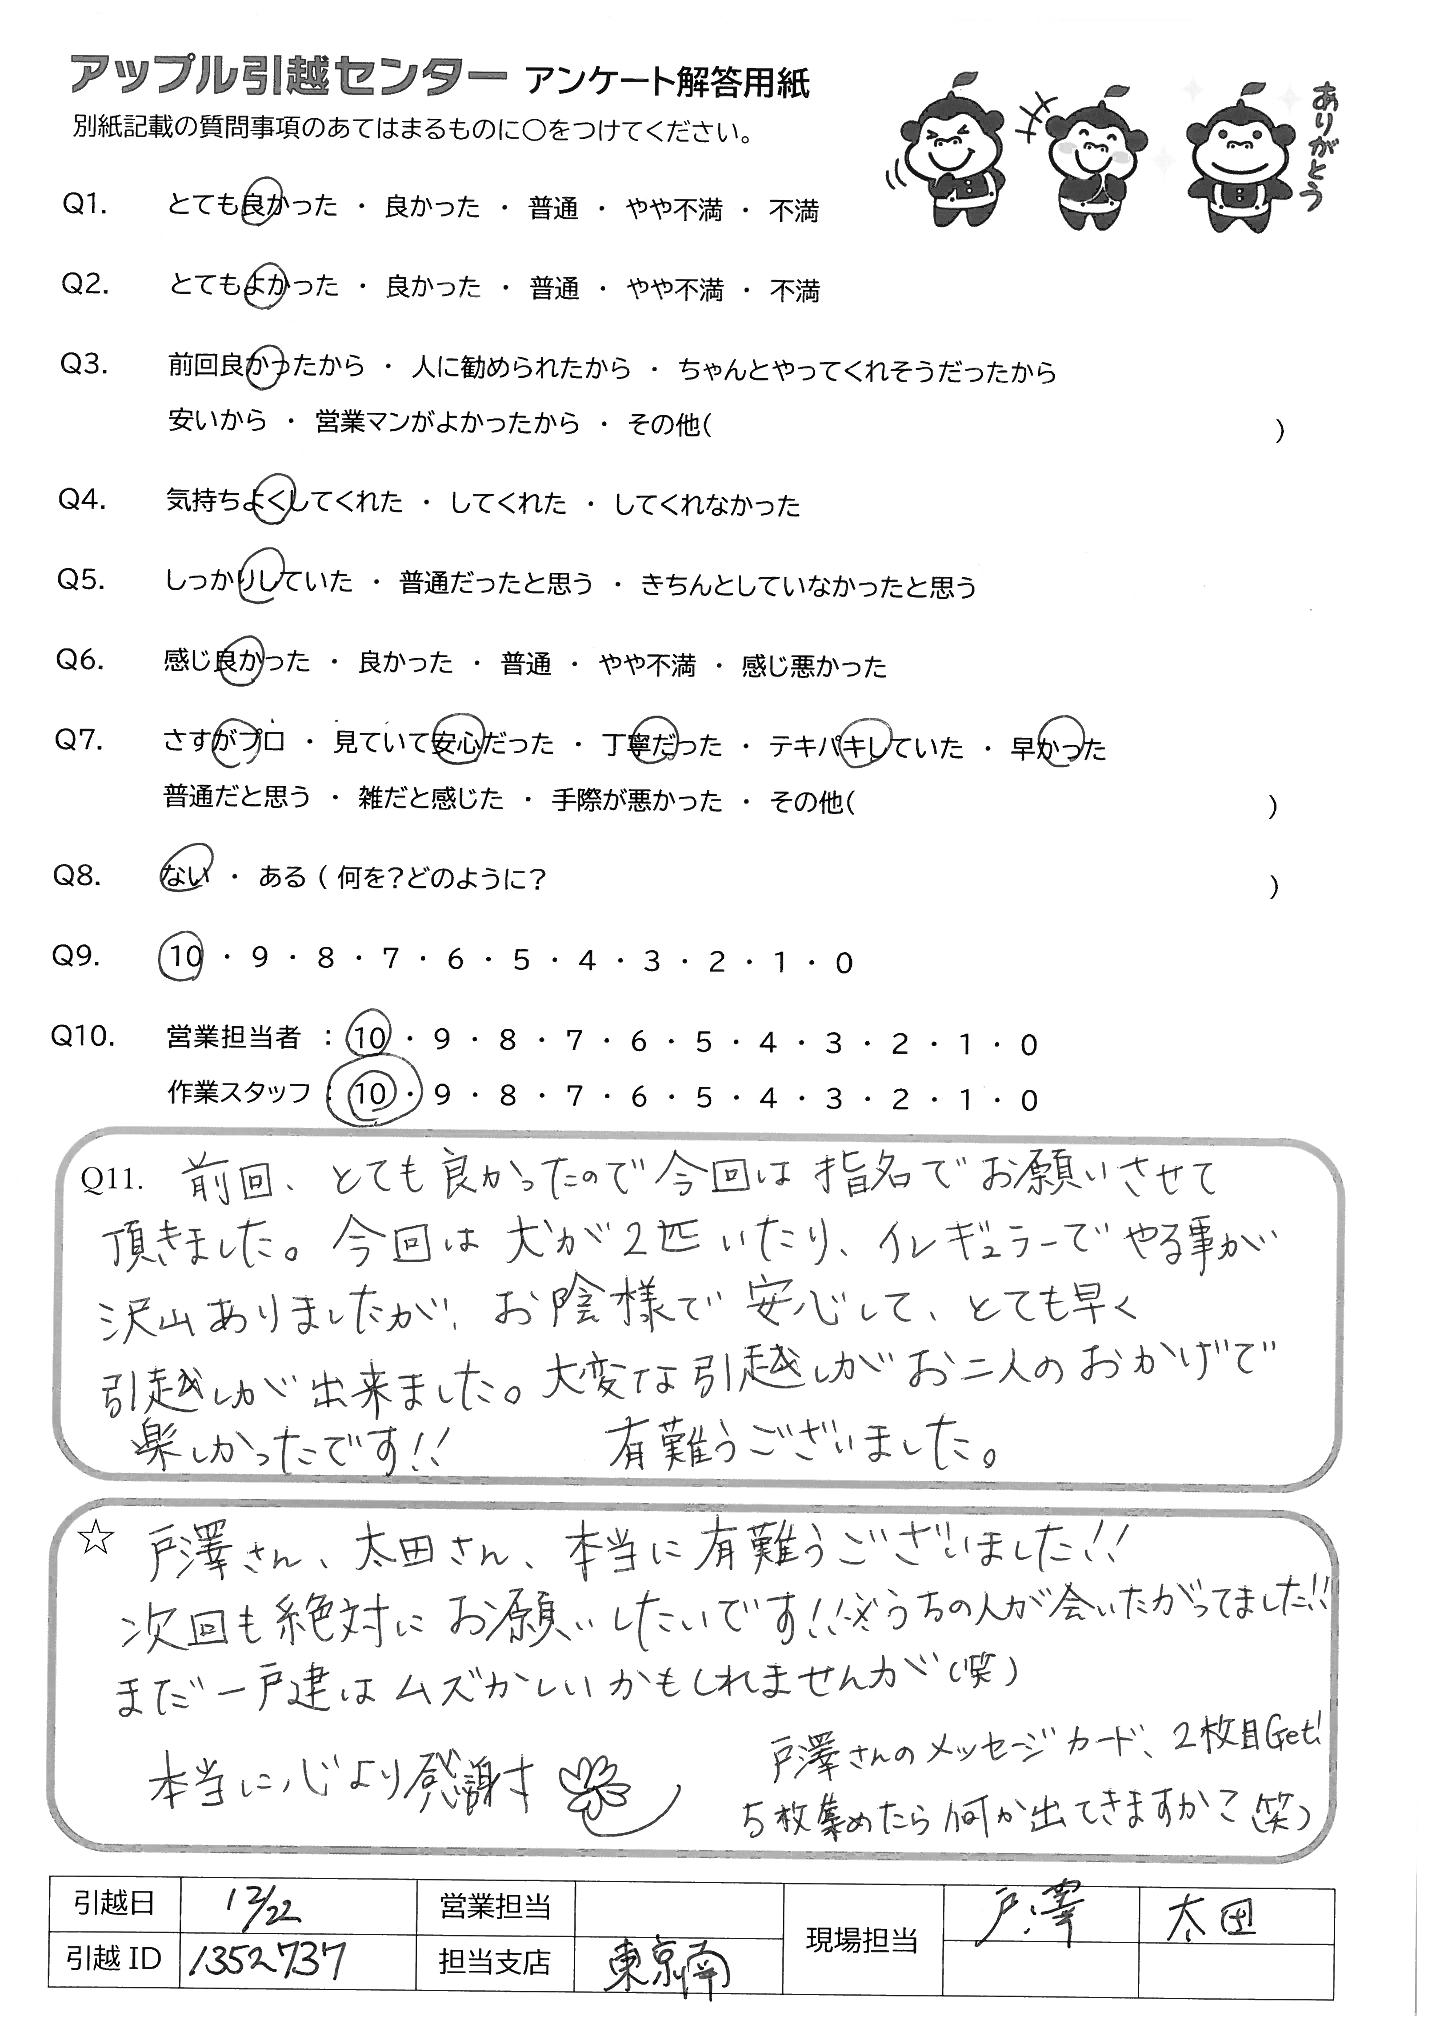 アップル引越センター アンケート解答用紙
別紙記載の質問事項のあてはまるものに〇をつけてください。
ありがとう
Q1. とても良かった ・ 良かった ・ 普通 ・ やや不満 ・ 不満
Q2. とてもよかった ・ 良かった ・ 普通 ・ やや不満 ・ 不満
Q3. 前回良かったから ・ 人に勧められたから ・ ちゃんとやってくれそうだったから
安いから ・ 営業マンがよかったから ・ その他( )
Q4. 気持ちよくしてくれた ・ してくれた ・ してくれなかった
Q5. しっかりしていた ・ 普通だったと思う ・ きちんとしていなかったと思う
Q6. 感じ良かった ・ 良かった ・ 普通 ・ やや不満 ・ 感じ悪かった
Q7. さすがプロ ・ 見ていて安心だった ・ 丁寧だった ・ テキパキしていた ・ 早かった
普通だと思う ・ 雑だと感じた ・ 手際が悪かった ・ その他( )
Q8. ない ・ ある ( 何を?どのように? )
Q9. 10 ・ 9 ・ 8 ・ 7 ・ 6 ・ 5 ・ 4 ・ 3 ・ 2 ・ 1 ・ 0
Q10. 営業担当者 : 10 ・ 9 ・ 8 ・ 7 ・ 6 ・ 5 ・ 4 ・ 3 ・ 2 ・ 1 ・ 0
作業スタッフ : 10 ・ 9 ・ 8 ・ 7 ・ 6 ・ 5 ・ 4 ・ 3 ・ 2 ・ 1 ・ 0
Q11. 前回、とても良かったので今回は指名でお願いさせて
頂きました。今回は犬が2匹いたり、イレギュラーでやる事が
沢山ありましたが、お陰様で安心して、とても早く
引越しが出来ました。大変な引越しがお二人のおかげで
楽しかったです!! 有難うございました。
☆ 戸澤さん、太田さん、本当に有難うございました!!
次回も絶対にお願いしたいです!!※うちの人が会いたがってました!!
まだ一戸建はムズかしいかもしれませんが(笑)
本当に心より感謝す
戸澤さんのメッセージカード、2枚目Get!
5枚集めたら何か出てきますか?(笑)
引越日 12/22 営業担当 現場担当 戸澤 太田
引越 ID 1352737 担当支店 東京南